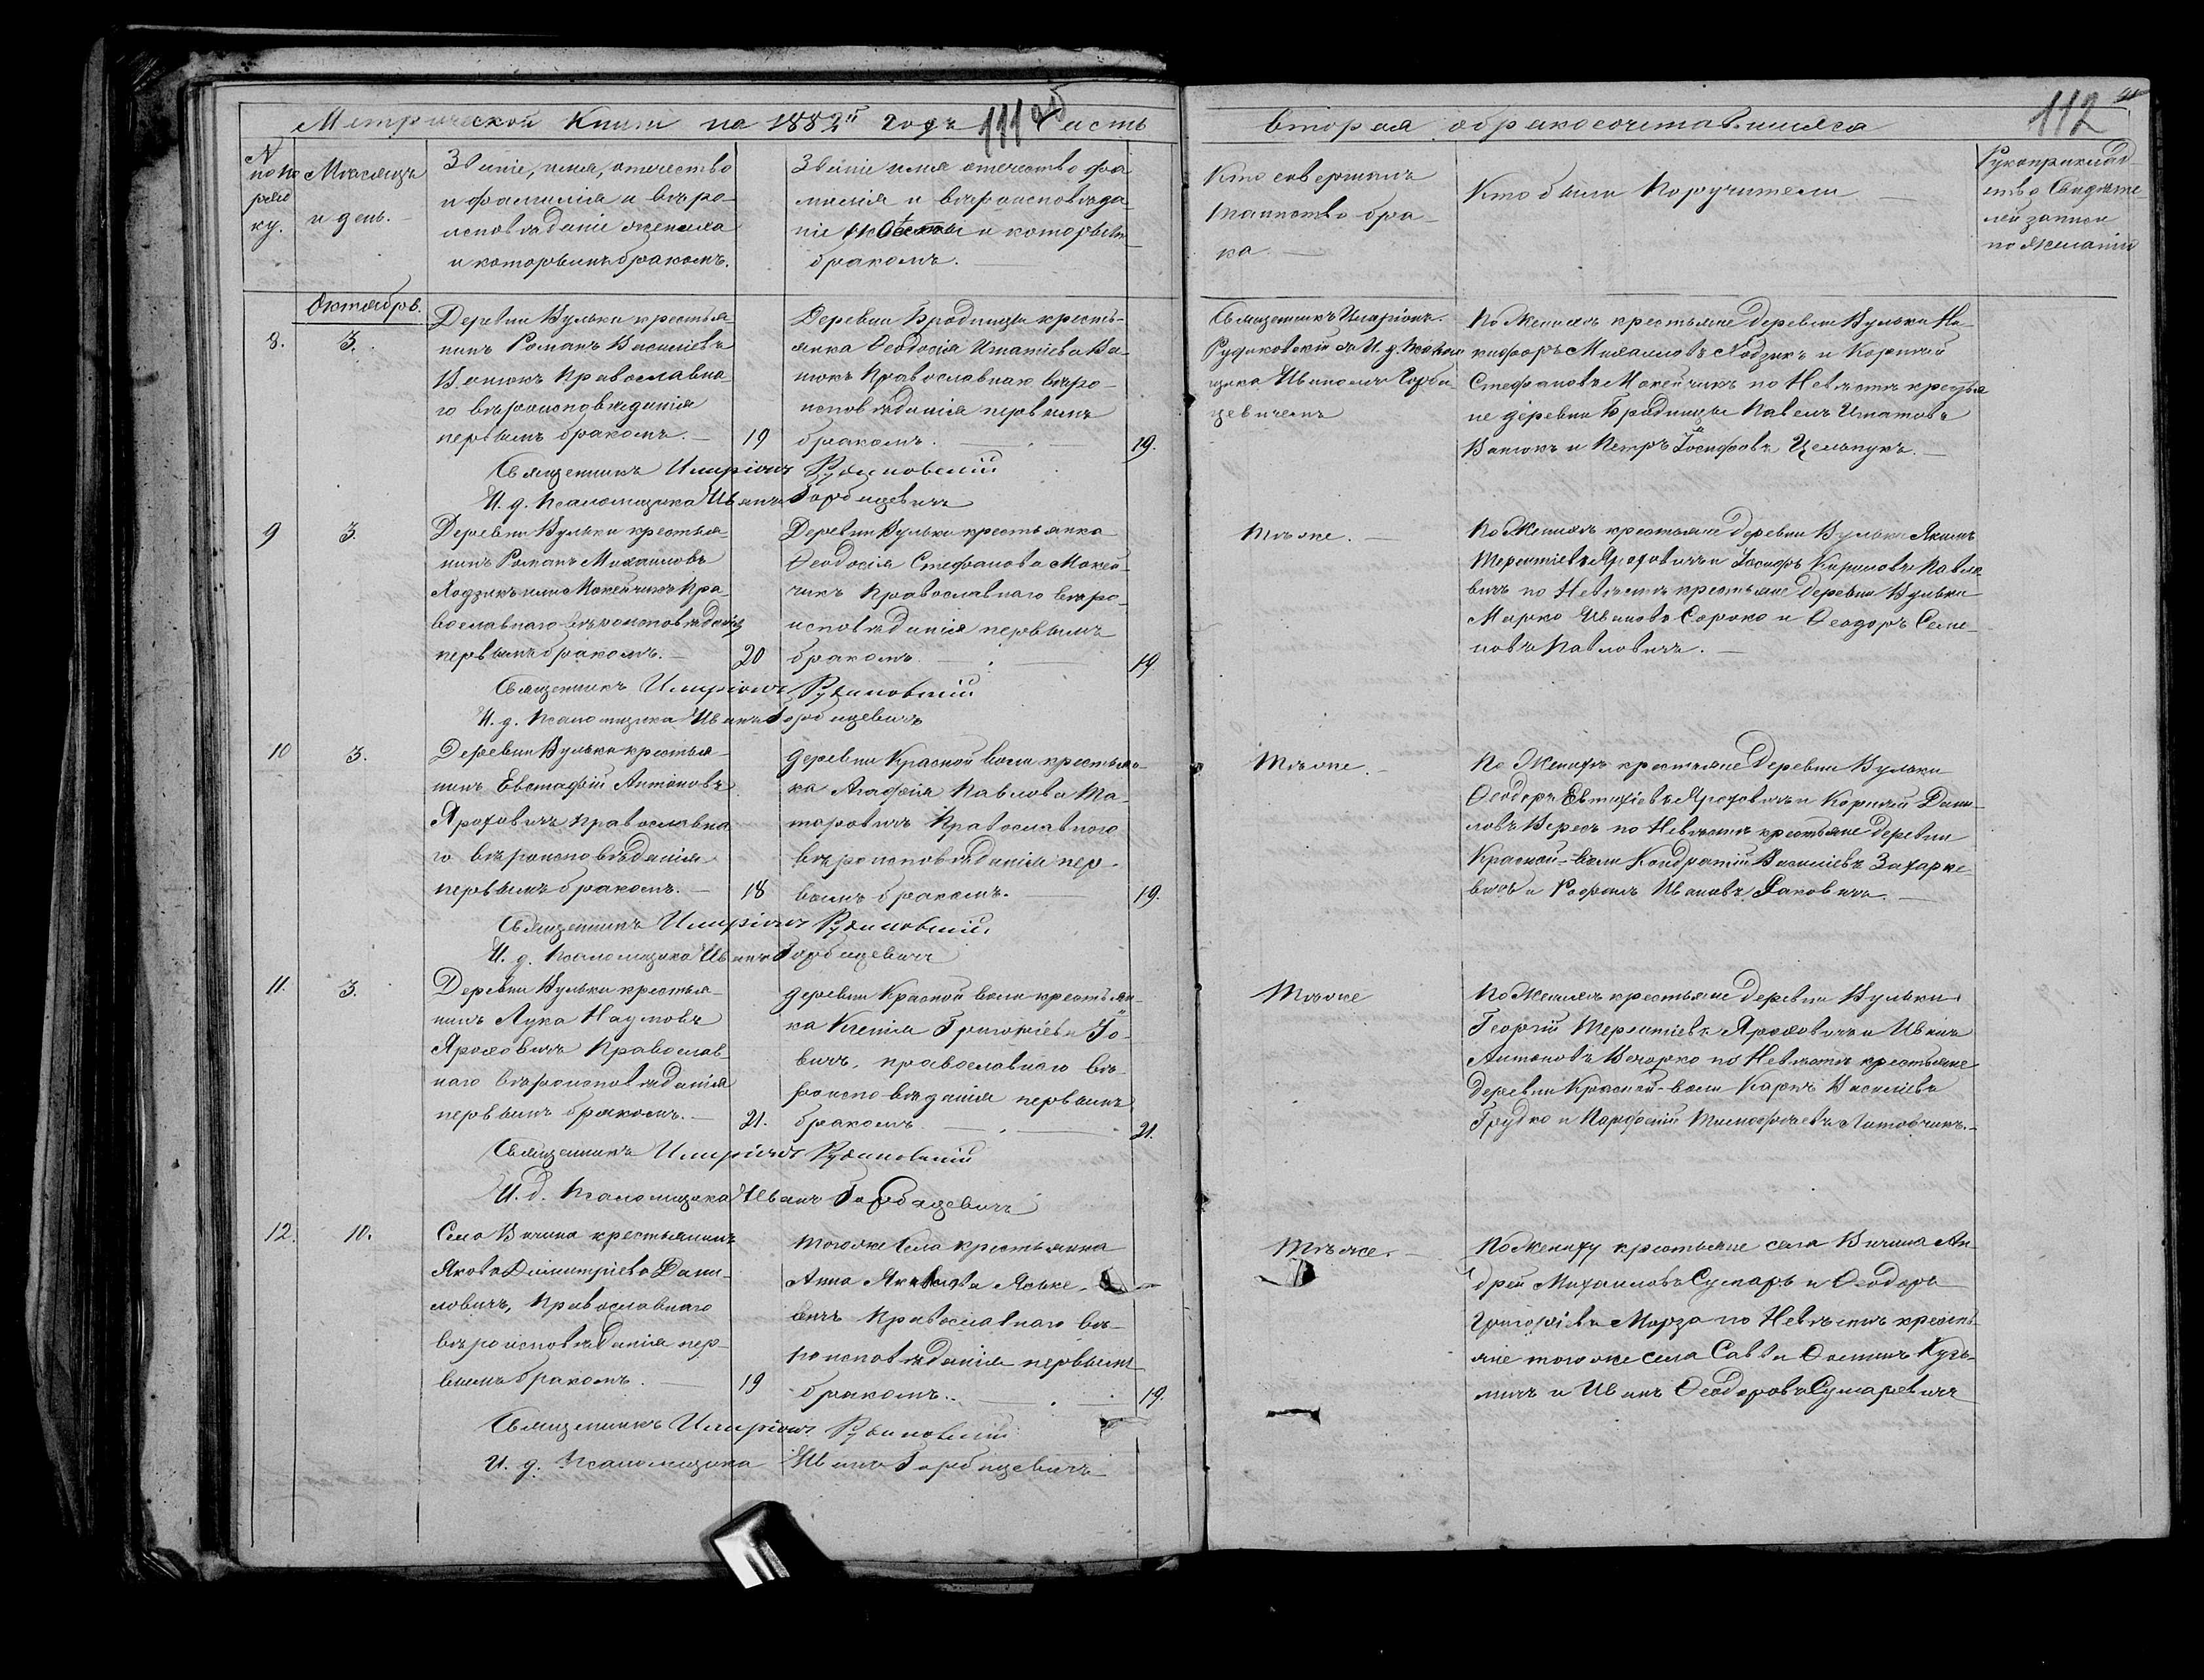 Метрической Книги на 1882й годъ Часть
111 об
вторая о бракосочетавшихся
112
№ по по
рядку.
Месяцъ
и день.
Званіе, имя, отчество
и фамилія и веро-
исповеданіе жениха
и которымъ бракомъ.
Званіе имя отчество фа
милія и вероисповеда-
ніе невесты и которымъ
бракомъ.
Кто совершилъ
таинство бра-
ка.
Кто были Поручители
Рукоприклад-
ство Свидете-
лей записи
по желанію
Октябрь.
8.
3.
Деревни Вульки крестья-
нинъ Романъ Василіевъ
Православна-
го вероисповеданія
первымъ бракомъ. 19
Деревни Бродницы кресть-
янка Феодосія Игнатіева Ва-
нюкъ Православнаго веро-
исповеданія первымъ
бракомъ. 19.
Священникъ Иларіонъ
за И. д. псалом
щика Иваномъ Горба
цевичемъ
По Женихе крестьяне деревни Вульки Ни-
кифоръ Михаиловъ Ходзикъ и Корнилій
Стефановъ Мокейчикъ по Невесте крестья
не деревни Бродницы Павелъ Игнатовъ
Ванюкъ и Петръ Іосифовъ
Священникъ Иларіонъ
И. д. Псаломщика Иванъ Горбацевичъ
9
3.
Деревни Вульки крестья-
нинъ Романъ Михаиловъ
Ходзикъ или Мокейчикъ Пра-
вославнаго вероисповеданія
первымъ бракомъ. 20
Деревни Вульки крестьянка
Феодосія Стефанова Мокей-
чикъ Православнаго веро-
исповеданія первымъ
бракомъ 19
Тъ же.
По Женихе крестьяне деревни Вульки Якимъ
Терентіевъ Яроховичъ и Іосифъ Кириловъ Павло-
вичъ по Невесте крестьяне деревни Вульки
Марко Ивановъ Сороко и Феодоръ Семе-
новъ Павловичъ.
Священникъ Иларіонъ
И. д. Псаломщика Иванъ Горбацевичъ
10
3.
Деревни Вульки крестья-
нинъ Евстафій Антоновъ
Яроховичъ Православна
го вероисповеданія
первымъ бракомъ. 18
деревни Красной воли крестьян-
ка Агафія Павлова Та-
таровичъ Православнаго
вероисповеданія пер-
вымъ бракомъ. 19.
Тъ же.
По Женихе крестьяне деревни Вульки
Феодоръ Яроховичъ и Корнилій Дани-
ловъ Вересъ по Невесте крестьяне деревни
Красной-воли Кондратій Василіевъ Захарке-
вичъ и Ивановъ
Священникъ Иларіонъ
И. д. Псаломщика Иванъ Горбацевичъ
11.
3.
Деревни Вульки крестья-
нинъ Лука Наумовъ
Яроховичъ Православ-
наго вероисповеданія
первымъ бракомъ. 21.
деревни Красной воли крестьян-
ка Ксенія Григоріева Іо-
вичъ, православнаго ве-
роисповеданія первымъ
бракомъ 21.
Тъ же
По Женихе крестьяне деревни Вульки
Георгій Терентіевъ Яроховичъ и Иванъ
Антоновъ Вечорко по Невесте крестьяне
деревни Красной-воли Карпъ Василіевъ
Грудко и Парфеній Тимофеевъ Литовчикъ.
Священникъ Иларіонъ
И. д. Псаломщика Иванъ Горбацевичъ
12.
10.
Села Вичина крестьянинъ
Яковъ Димитріевъ Дани-
ловичъ, Православнаго
вероисповеданія пер-
вымъ бракомъ. 19
того же села крестьянка
Анна
вичъ Православнаго ве-
роисповеданія первымъ
бракомъ. 19.
Тъ же.
По Жениху крестьяне села Вичина Ан-
дрей Михаиловъ Сумаръ и Феодоръ
Григоріевъ Морзо по Невесте кресть-
яне того же села Савва Фоминъ Кузь-
мичъ и Иванъ Феодоровъ Сумаревичъ
Священникъ Иларіонъ
И. д. Псаломщика Иванъ Горбацевичъ